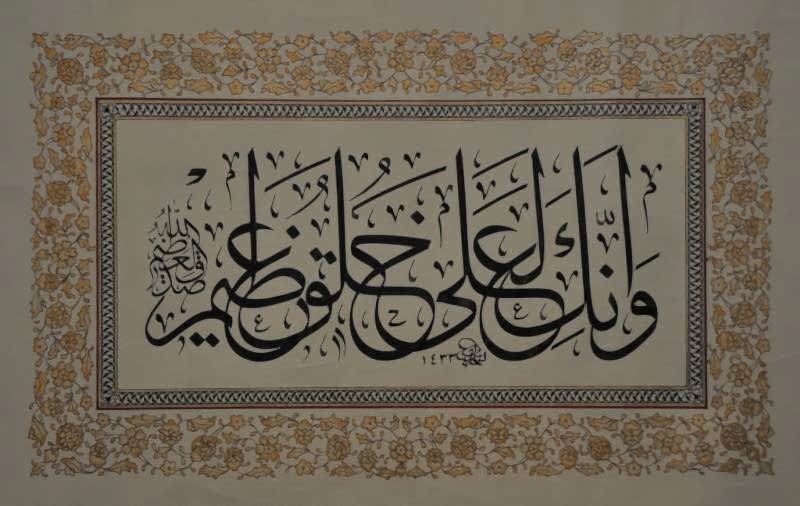 وَإِنَّكَ لَعَلَى خُلُقٍ عَظِيمٍ
صدق الله العظيم
١٤٣٣